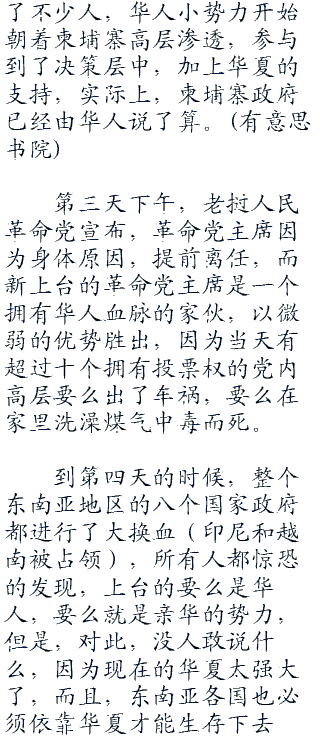 了不少人，华人小势力开始
朝着柬埔寨高层渗透，参与
到了决策层中，加上华夏的
支持，实际上，柬埔寨政府
已经由华人说了算。(有意思
书院)
第三天下午，老挝人民
革命党宣布，革命党主席因
为身体原因，提前离任，而
新上台的革命党主席是一个
拥有华人血脉的家伙，以微
弱的优势胜出，因为当天有
超过十个拥有投票权的党内
高层要么出了车祸，要么在
家里洗澡煤气中毒而死。
到第四天的时候，整个
东南亚地区的八个国家政府
都进行了大换血（印尼和越
南被占领），所有人都惊恐
的发现，上台的要么是华
人，要么就是亲华的势力，
但是，对此，没人敢说什
么，因为现在的华夏太强大
了，而且，东南亚各国也必
须依靠华夏才能生存下去